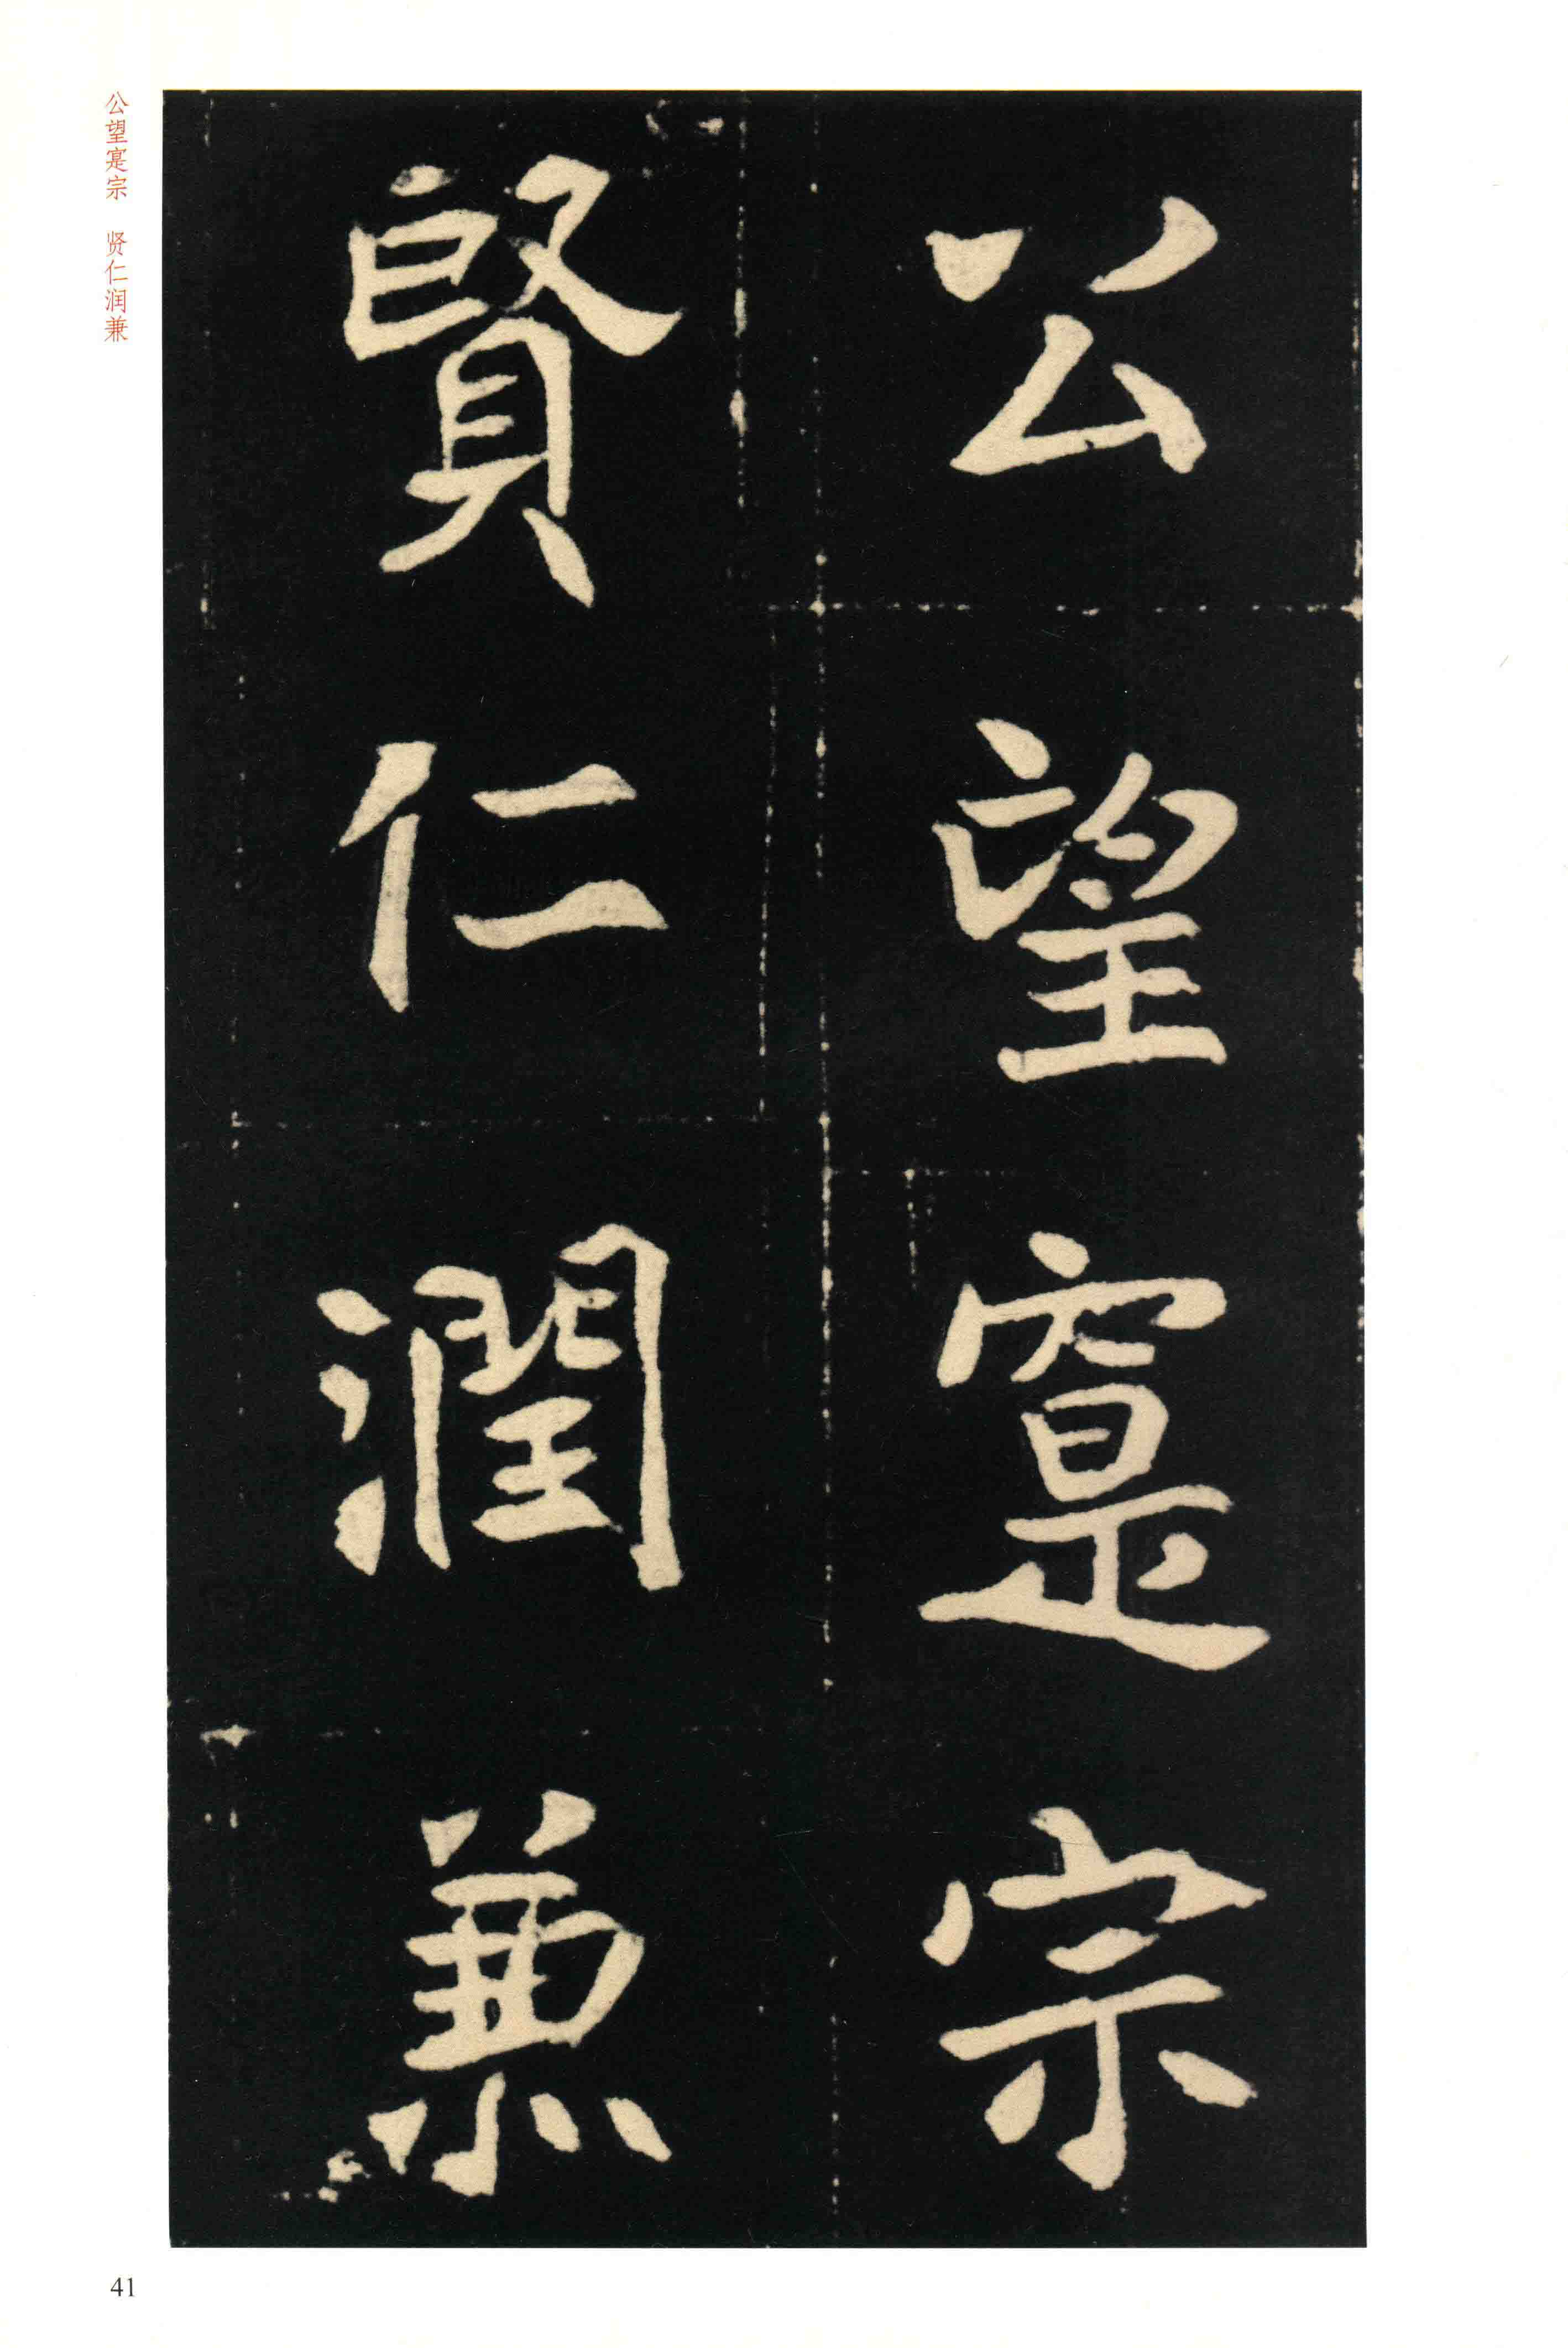 公望寔宗
賢仁潤兼
公望寔宗　贤仁润兼
41